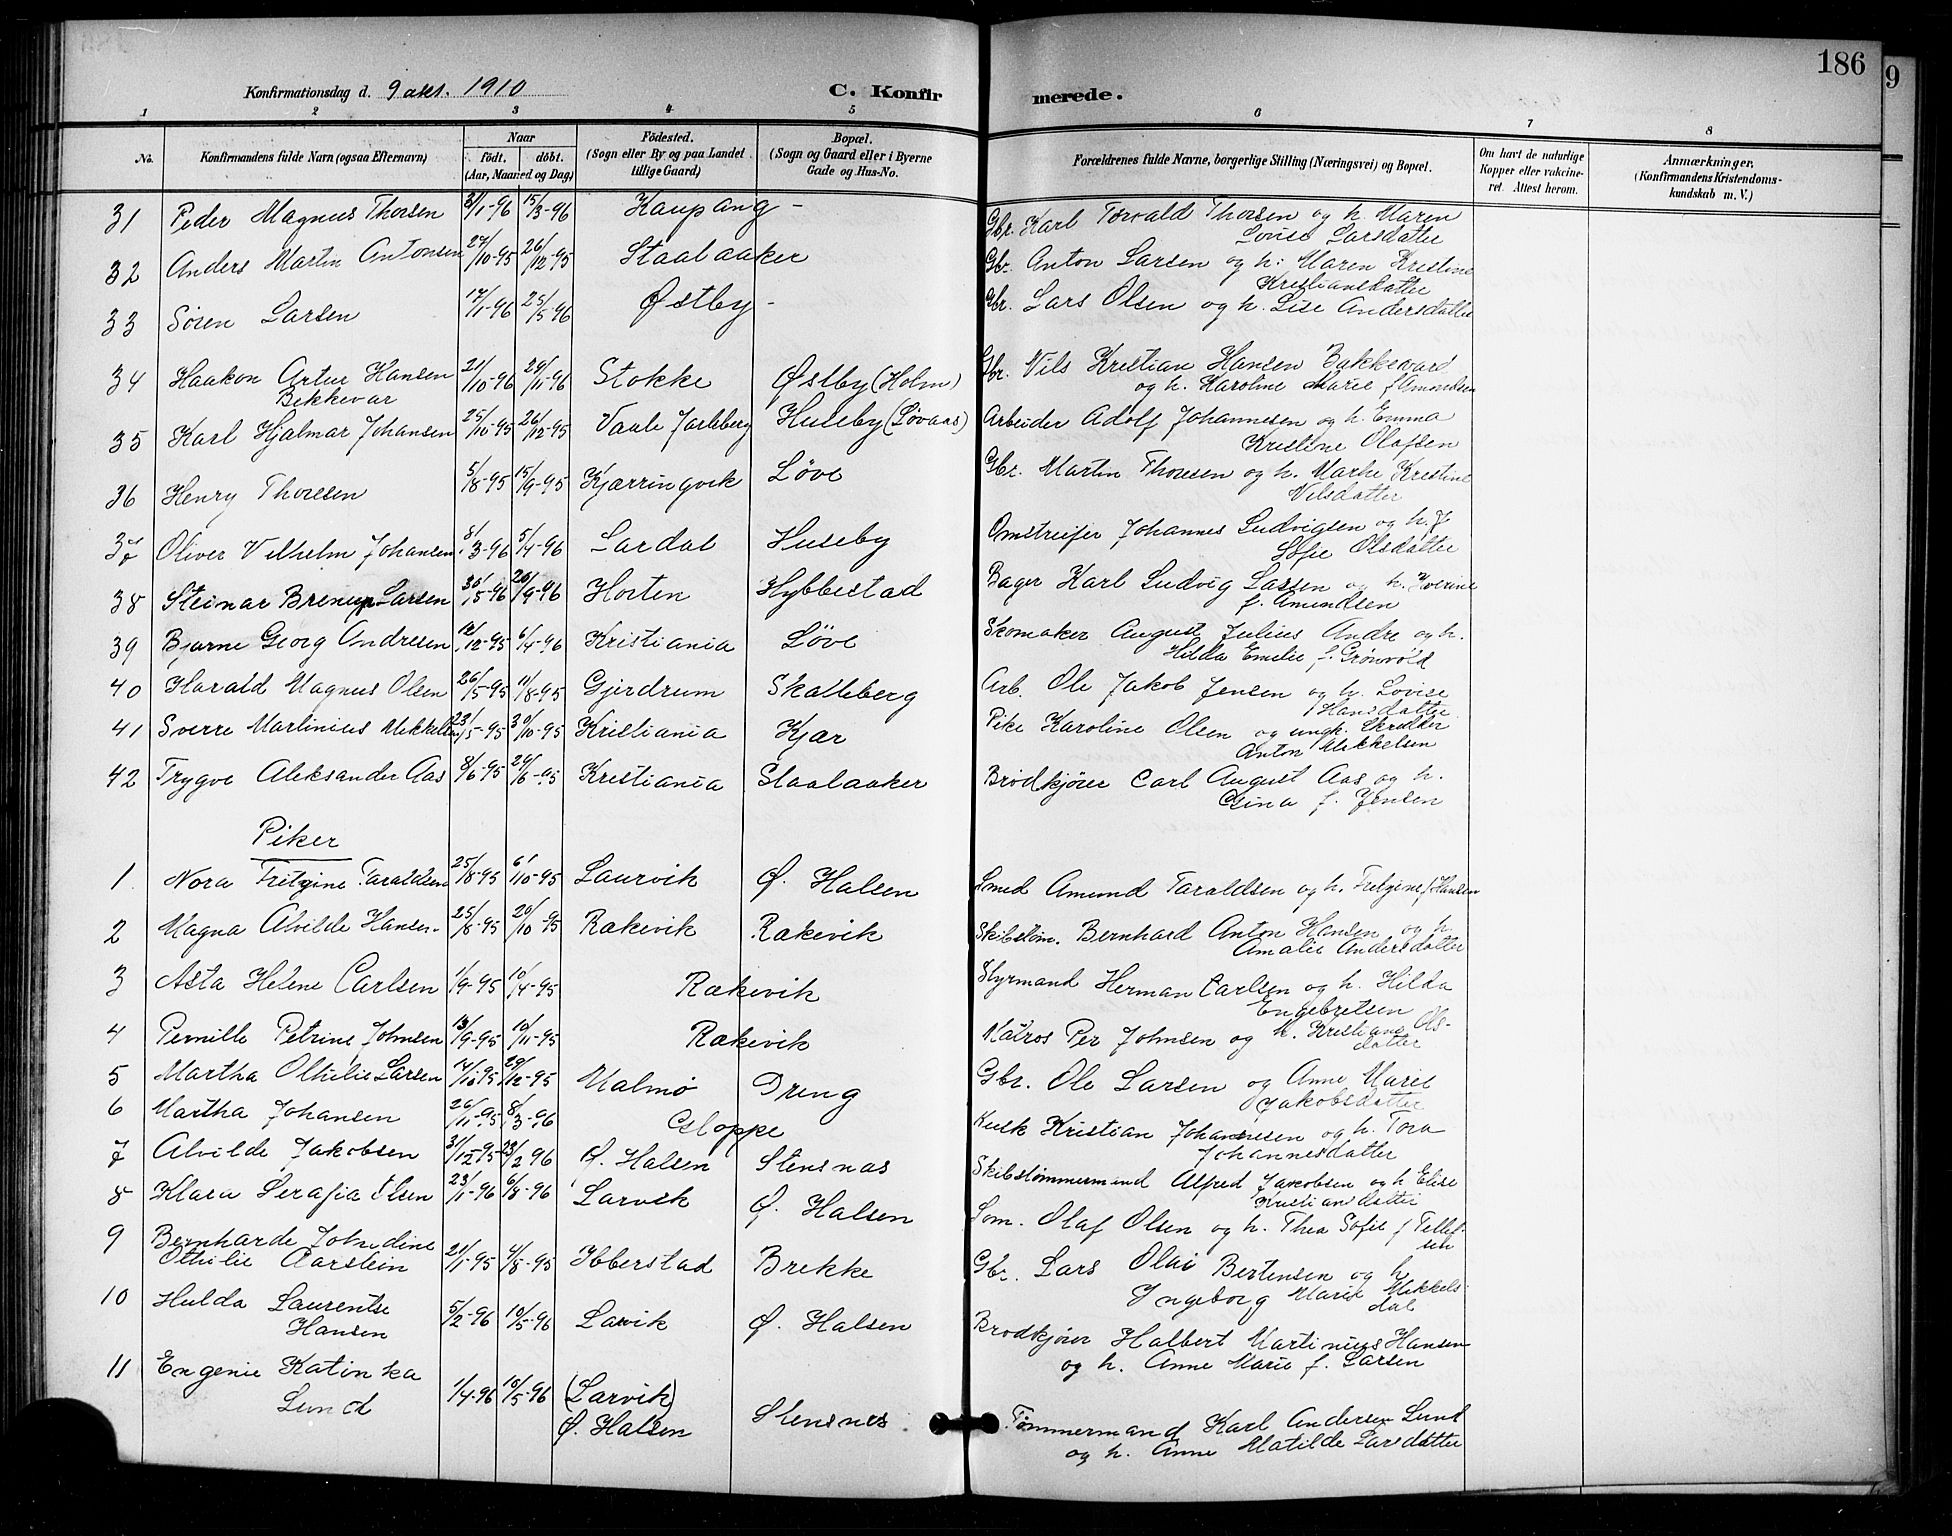 186
9
Konfirmationsdag d. 9 okt. 1910
C. Konfirmerede.
1 2 3 4 5 6 7 8
No.
Konfirmandens fulde Navn (ogsaa Efternavn)
Naar
födt. döbt.
(Aar, Maaned og Dag)
Födested.
(Sogn eller By og paa Landet
tillige Gaard)
Bopæl.
(Sogn og Gaard eller i Byerne
Gade og Hus-No.
Forældrenes fulde Navne, borgerlige Stilling (Næringsvei) og Bopæl.
Om havt de naturlige
Kopper eller vakcine-
ret. Attest herom.
Anmærkninger.
(Konfirmandens Kristendoms-
kundskab m. V.)
31 Peder Magnus Thorsen 31/1-96 15/3-96 Kaupang - Gbr. Karl Torvald Thorsen og h. Maren
Louise Larsdatter
32 Anders Martin Antonsen 27/10-95 26/12-95 Staalaaker Gbr. Anton Larsen og h. Maren Kristine
Kristiansdatter
33 Sören Larsen 17/1-96 25/5-96 Østby - Gbr. Lars Olsen og h. Lise Andersdatter
34 Haakon Artur Hansen 21/10-96 29/11-96 Stokke Østby (Holm) Gbr. Nils Kristian Hansen Bakkevard
Bekkevar
og h. Karoline Marie f Amundsen
35 Karl Hjalmar Johansen 25/10-95 26/12-95 Vaale Jarlsberg Huseby (Løvaas) Arbeider Adolf Johannesen og h. Emma
Kristine Olafsen
36 Henry Thoresen 5/8-95 15/9-95 Kjærringvik Løve Gbr. Martin Thoresen og h. Marke Kristine
Nilsdatter
37 Oliver Vilhelm Johansen 8/3-96 5/4-96 Lardal Huseby Omstreifer Johannes Ludvigsen og h. J
Sofie Olsdatter
38 Steinar Brenup Larsen 30/5-96 20/9-96 Horten Hybbestad Bager Karl Ludvig Larsen og h. Hverine
f. Amundsen
39 Bjarne Georg Andresen 12/12-95 6/4-96 Kristiania Løve Skomaker August Julius Andre og h.
Hilda Emelie f. Grønvold
40 Harald Magnus Olsen 26/5-95 11/8-95 Gjerdrum Skalleberg Arb. Ole Jakob Jensen og h. Lovise
Hansdatter
41 Sverre Martinius Mikkelsen 23/5-95 30/10-95 Kristiania Kjær Pike Karoline Olsen og ungk. Skrædder
Anton Mikkelsen
42 Trygve Aleksander Aas 8/6-95 29/6-95 Kristiania Staalaaker Brødkjører Carl August Aas og h.
Gina f. Jensen
Piker
1. Nora Fritzine Taraldsen 25/8-95 6/10-95 Laurvik Ø. Halsen Smed Amund Taraldsen og h. Fritzine f Hansen
2 Magna Alvilde Hansen 25/8-95 20/10-95 Rakevik Rakevik Skibstøm. Bernhard Anton Hansen og h.
Amalie Andersdatter
3 Asta Helene Carlsen 1/9-95 10/4-95 Rakevik Styrmand Herman Carlsen og h. Hilda
Engebretsen
4 Pernille Petrine Johnsen 13/9-95 10/11-95 Rakevik Matros Per Johnsen og h. Kristiane Ols-
datter
5 Martha Othilie Larsen 14/10-95 29/12-95 Malmø Dreng Gbr. Ole Larsen og Anne Marie
Jakobsdatter
6 Martha Johansen 26/11-95 8/3-96 Gloppe Kusk Kristian Johannesen og h. Tora
Johannesdatter
7 Alvilde Jakobsen 31/12-95 23/2 96 Ø. Halsen Stensnæs Skibstømmermand Alfred Jakobsen og h Elise
Kristiansdatter
8 Klara Serafia Olsen 23/1-96 6/8-96 Larvik Ø. Halsen Søm. Olaf Olsen og h. Thea Sofie f Tellef-
sen
9 Bernharde Johndine
Othilie Aarstein 21/1-95 4/8-95 Ibberstad Brekke Gbr. Lars Olai Bertensen og h
Ingeborg Marie Mikkels-
dat
10 Hulda Laurentse
Hansen 5/2-96 10/5-96 Larvik Ø. Halsen Brodkjører Halbert Martinius Hansen
og h. Anne Marie f. Larsen
11 Engenie Katinka
Lund 1/4-96 10/5-96 (Larvik)
Ø. Halsen Stensnes Tømmermand Karl Andersen Lund
og h. Anne Matilde Larsdatter